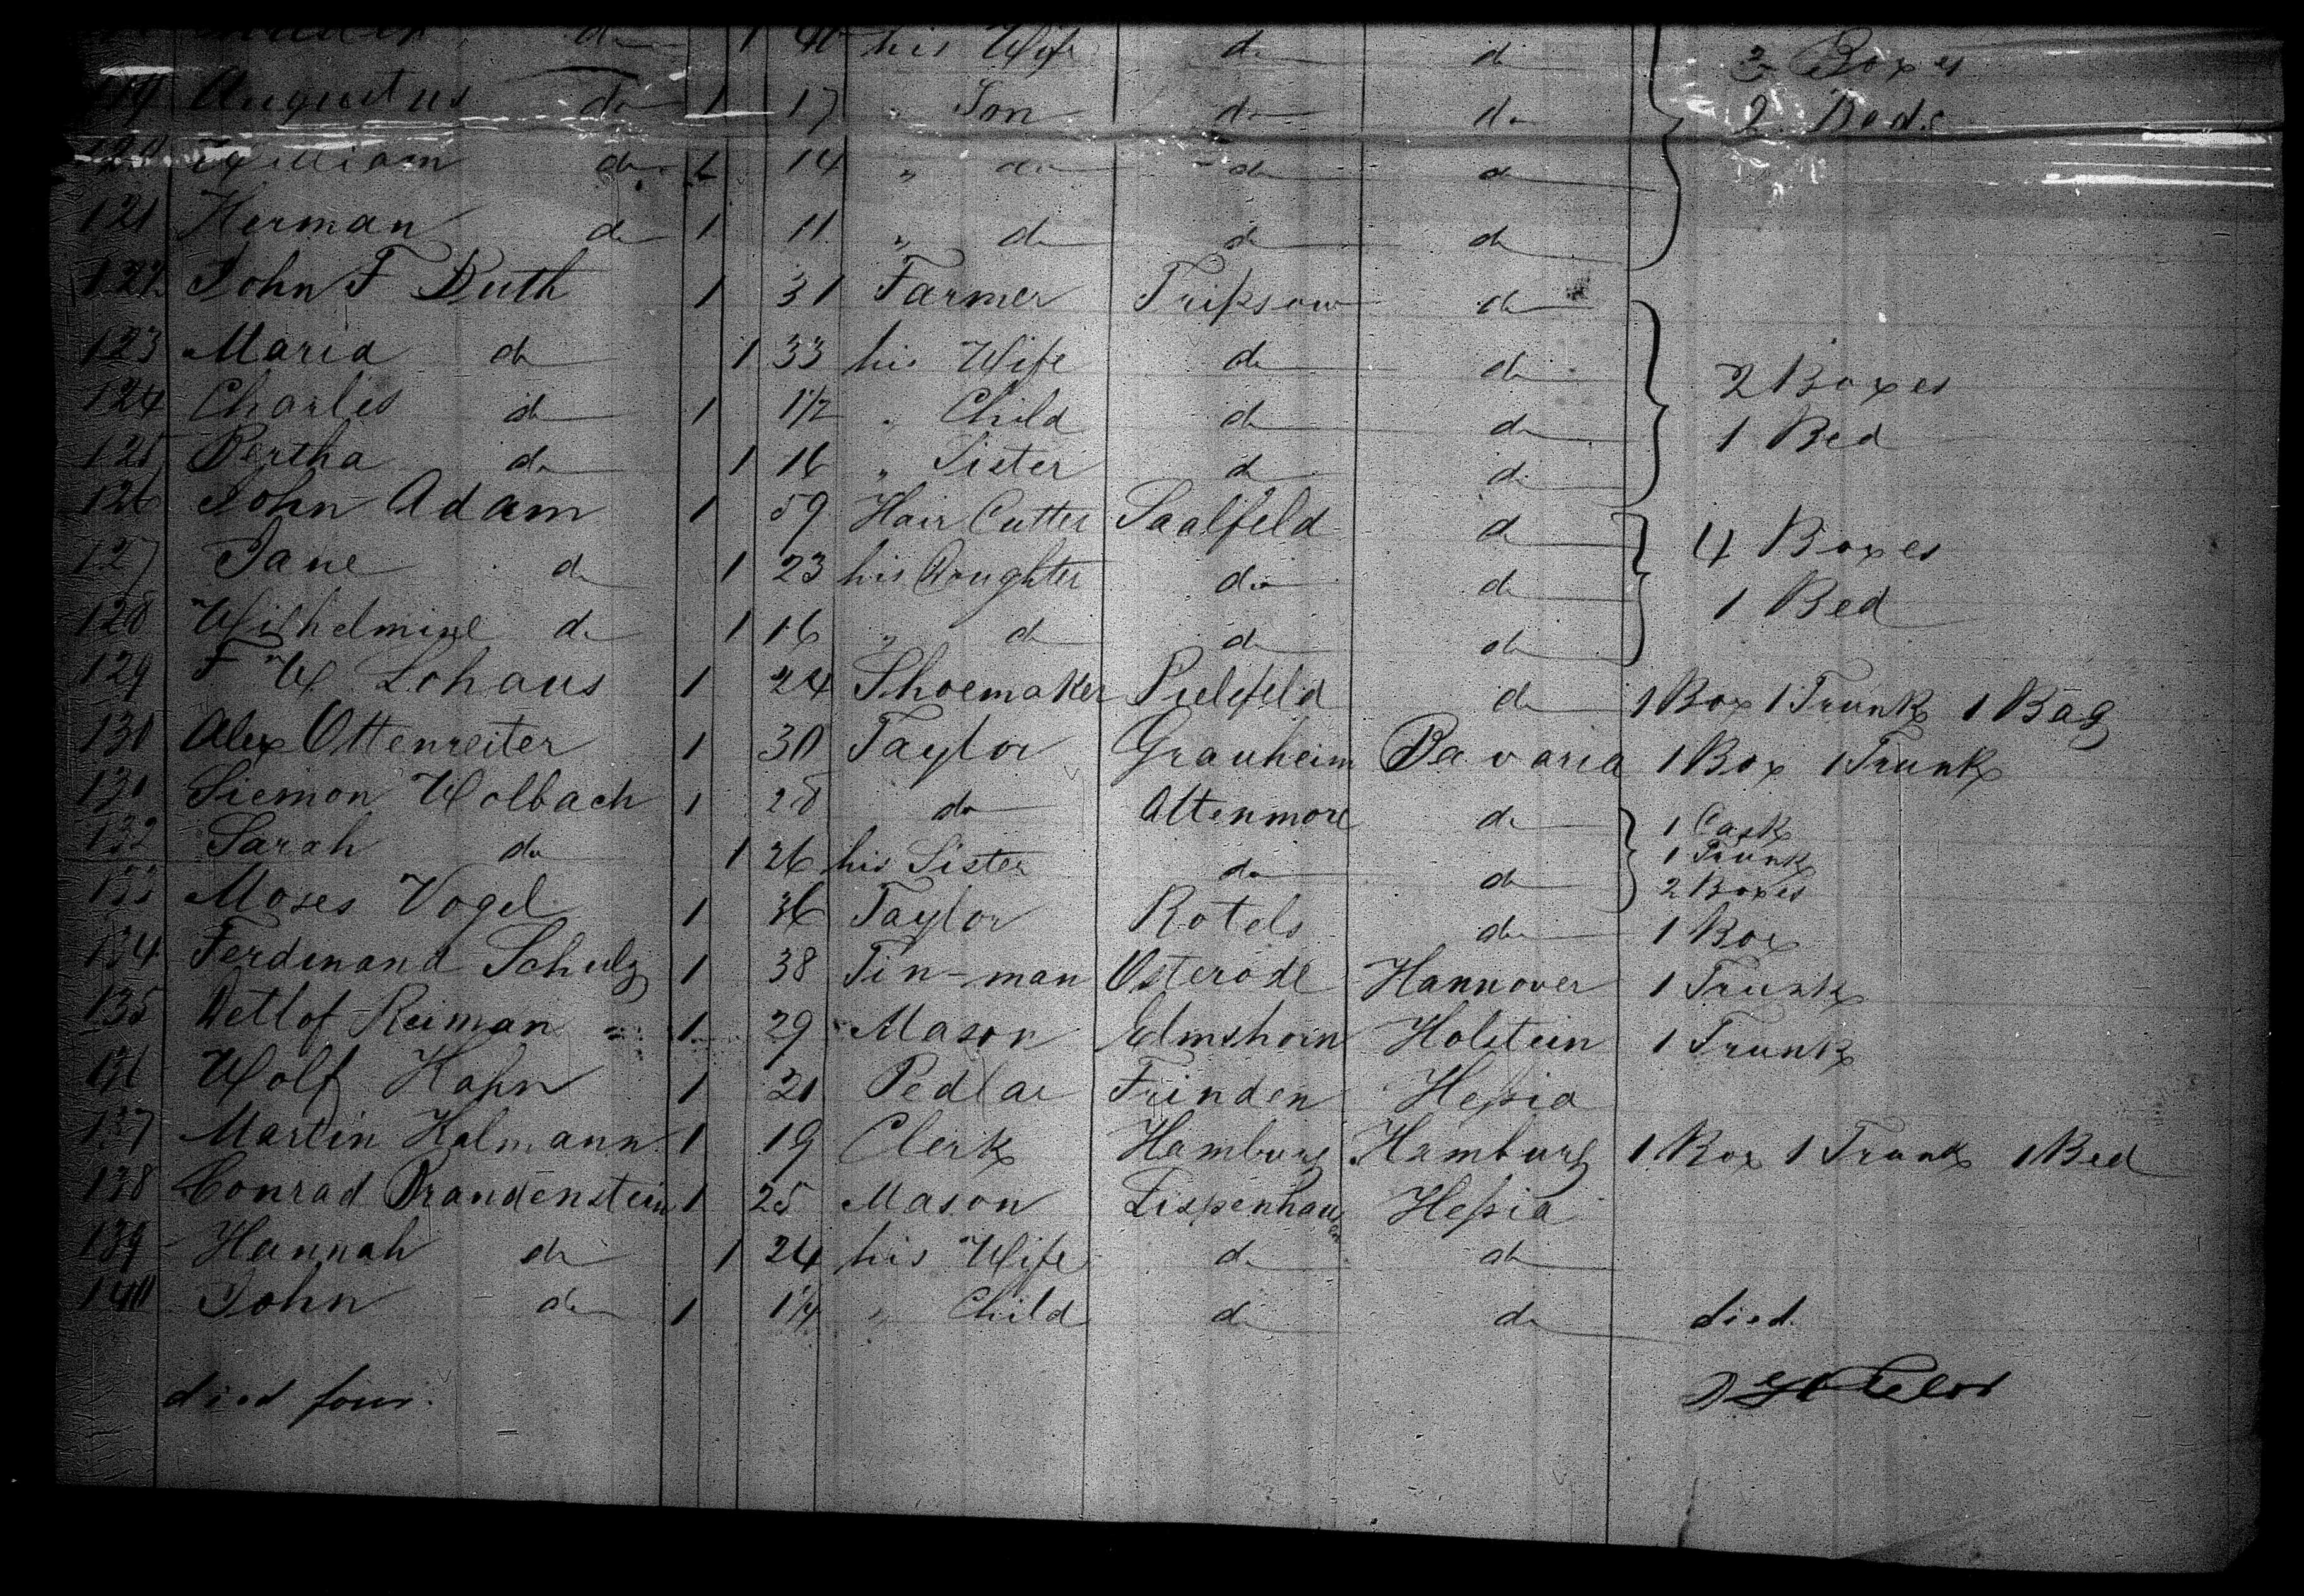 do 1 40 his Wife do do 2 Boxes
119 Augustus do 1 17 " Son do do 2 Beds
120 William do 1 14 " do do do
121 Herman do 1 11 " do do do
122 John F Buth 1 31 Farmer Tripsow do
123 Maria do 1 33 his Wife do do 2 Boxes
124 Charles do 1 1 1/2 " Child do do 1 Bed
125 Bertha do 1 16 " Sister do do
126 John Adam 1 59 Hair Cutter Saalfeld do 4 Boxes
127 Jane do 1 23 his Daughter do do 1 Bed
128 Wilhelmine do 1 16 " do do do
129 F W Lohaus 1 24 Shoemaker Bielefeld do 1 Box 1 Trunk 1 Bag
130 Alex Ottenreiter 1 30 Taylor Grauheim Bavaria 1 Box 1 Trunk
131 Siemon Wolbach 1 28 do Altenmore do 1 Cask
132 Sarah do 1 26 his Sister do do 1 Trunk 2 Boxes
133 Moses Vogel 1 36 Taylor Rotels do 1 Box
134 Ferdinand Schulz 1 38 Tin-man Osterode Hannover 1 Trunk
135 Detlof Reiman 1 29 Mason Elmshorn Holstein 1 Trunk
136 Wolf Hahn 1 21 Pedlar Frinden Hessia
137 Martin Halmann 1 19 Clerk Hamburg Hamburg 1 Box 1 Trunk 1 Bed
138 Conrad Brandenstein 1 25 Mason Lispenhausen Hessia
139 Hannah do 1 24 his Wife do do
140 John do 1 1 1/4 " Child do do died.
died four.